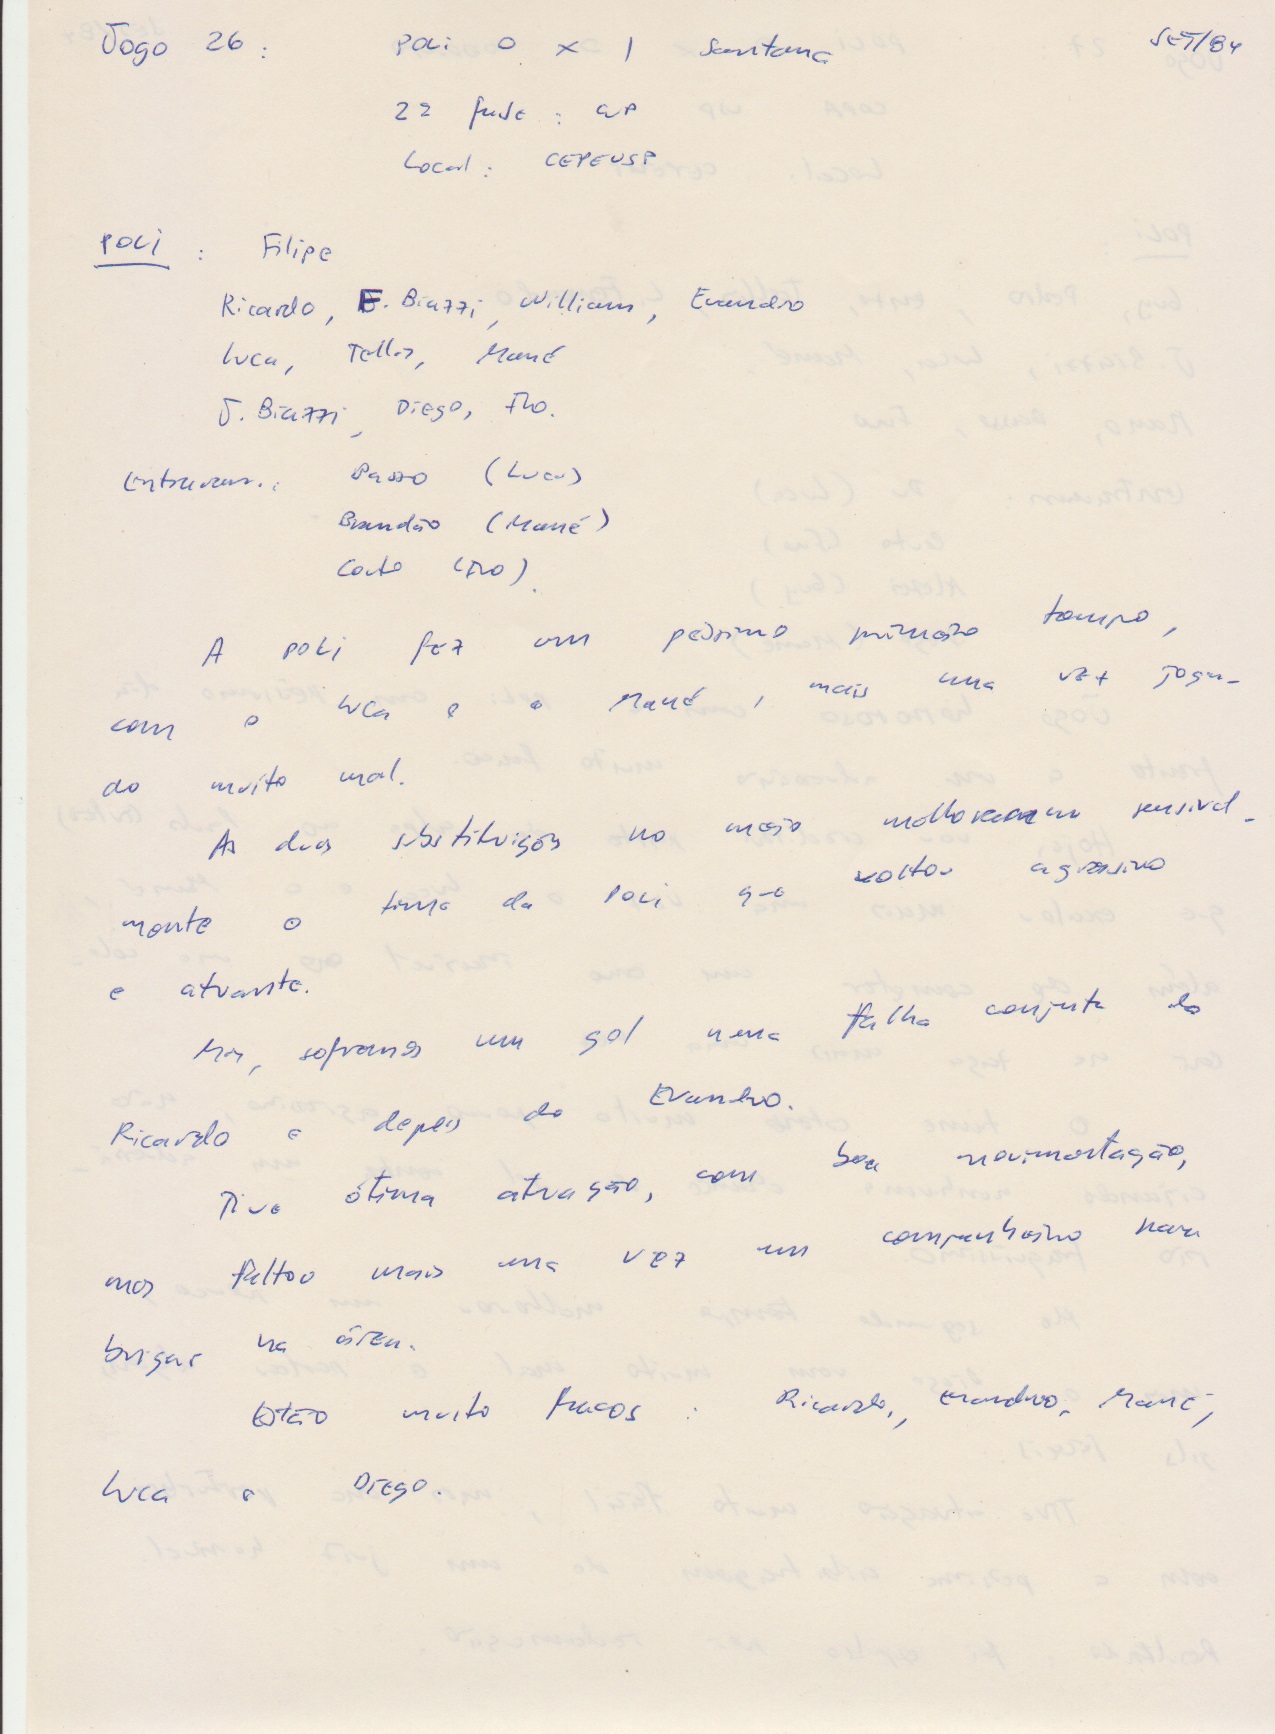 Jogo 26 : POLI 0 x 1 Santana SET/84
2ª fase : CUP
Local : CEPEUSP
POLI : Filipe
Ricardo, E. Biazzi, William, Evandro
Luca, Telles, Mané
J. Biazzi, Diego, Ivo.
Entraram : Passo (Luca)
Brandão (Mané)
Couto (Ivo).
A POLI fez um péssimo primeiro tempo,
com o Luca e o Mané, mais uma vez jogan-
do muito mal.
As duas substituições no meio melhoraram sensivel-
mente o time da POLI que voltou agressivo
e atuante.
Mas, sofremos um gol numa falha conjunta do
Ricardo e depois do Evandro.
Tive ótima atuação, com boa movimentação,
mas faltou mais uma vez um companheiro para
brigar na área.
Estão muito fracos : Ricardo, Evandro, Mané,
Luca e Diego.